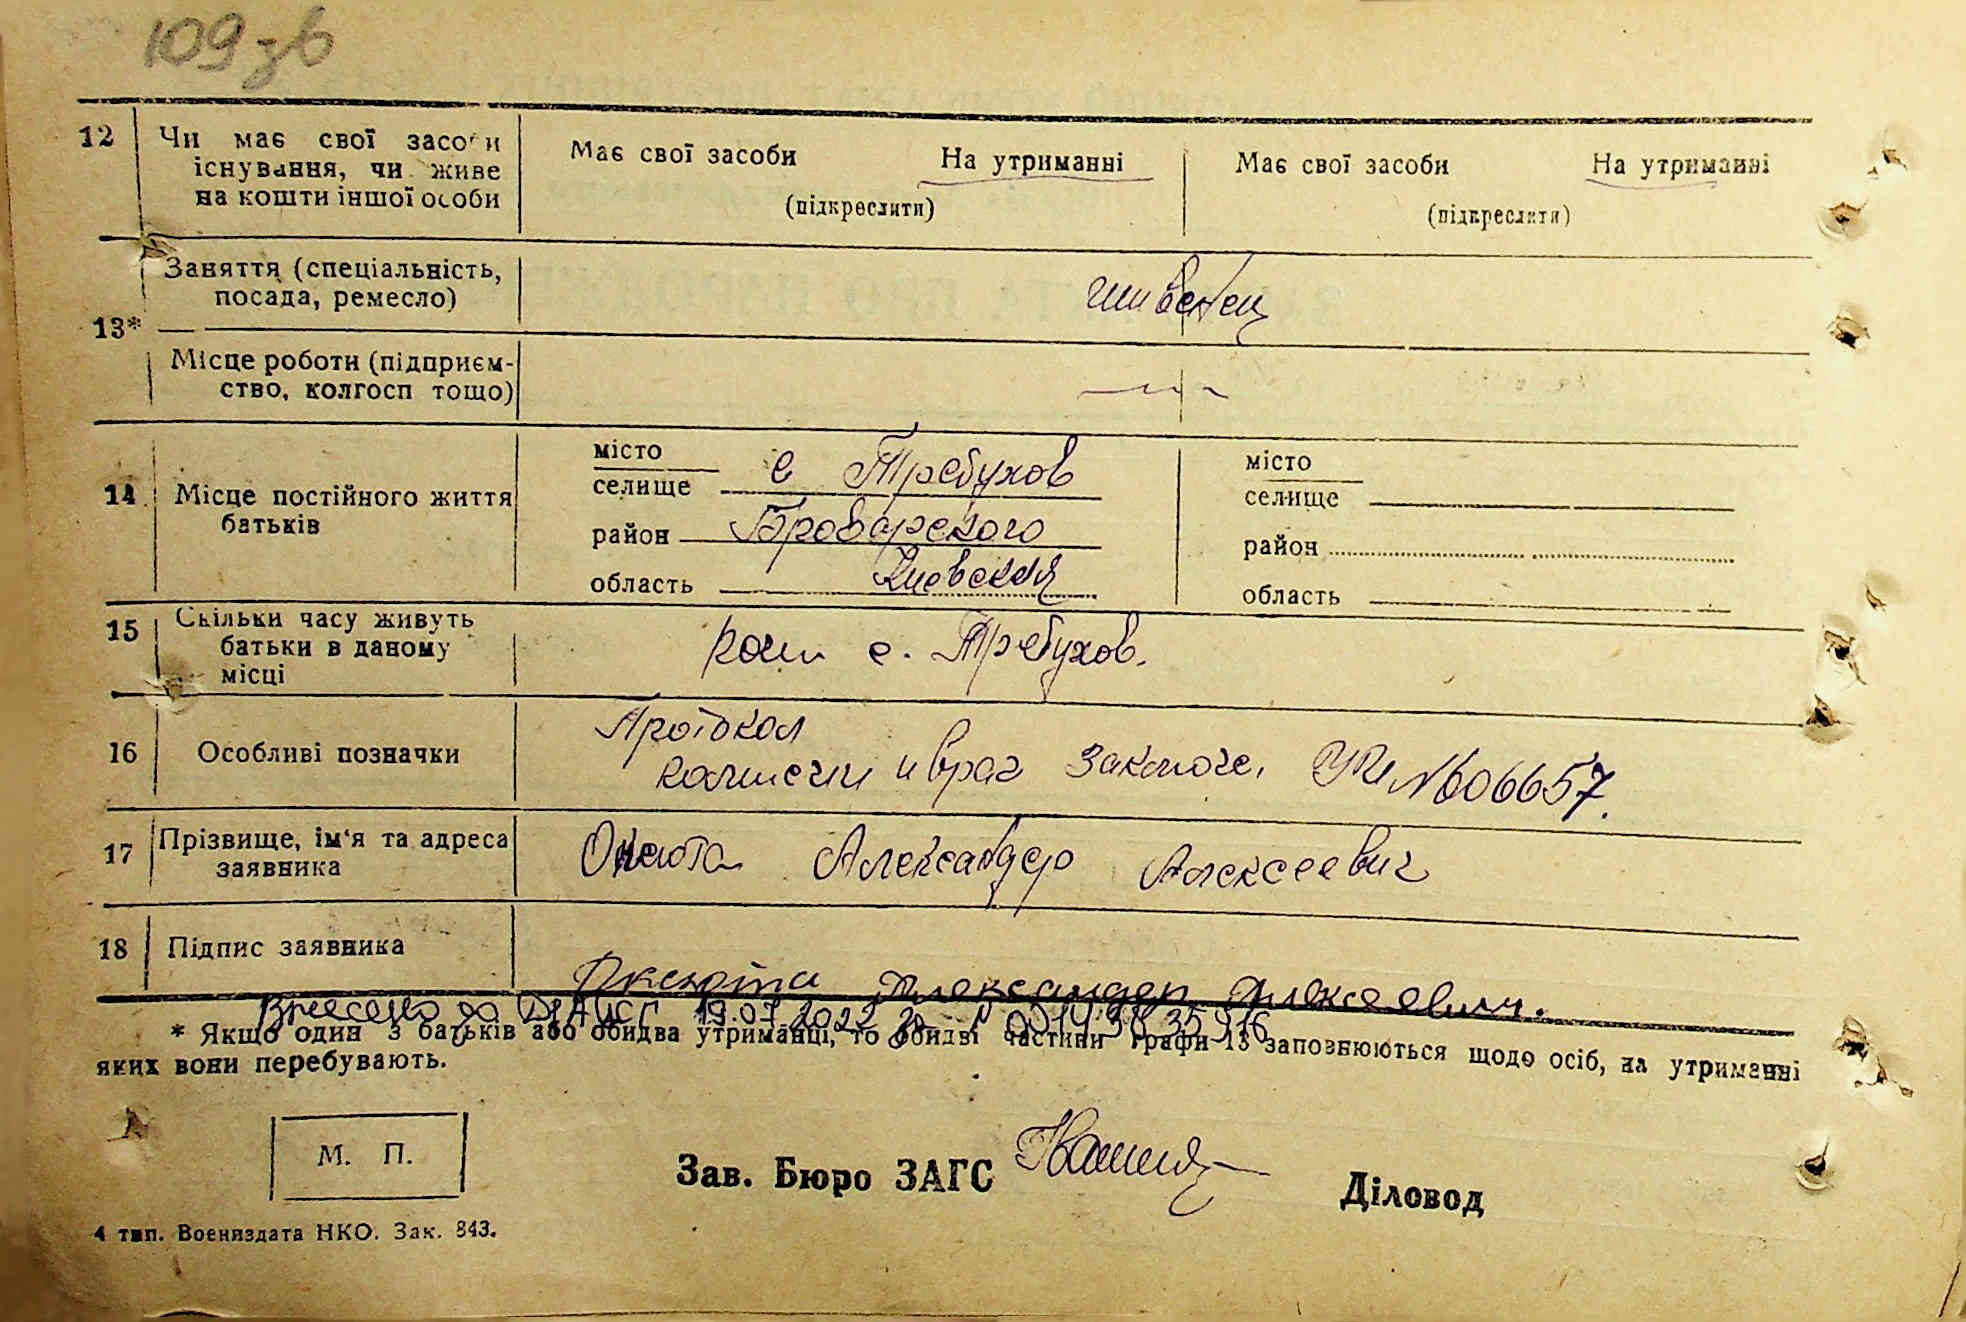 109 зв
12 Чи має свої засоби Має свої засоби На утриманні Має свої засоби На утриманні
існування, чи живе
на кошти іншої особи (підкреслити) (підкреслити)
Заняття (спеціальність,
посада, ремесло)
13*
Місце роботи (підприєм-
ство, колгосп тощо)
місто місто
селище с Требухов селище
14 Місце постійного життя
батьків
район Броварского район
область Киевская область
15 Скільки часу живуть
батьки в даному
місці
с. Требухов.
16 Особливі позначки Протокол
и врач заключе, № 06657.
17 Прізвище, ім'я та адреса
заявника
Александр Алексеевич
18 Підпис заявника
Александер Алексеевич.
Внесено до ДРАЦСГ 19.07.2022 00149835916
* Якщо один з батьків або обидва утриманці, то обидві частини графи 13 заповнюються щодо осіб, на утриманні
яких вони перебувають.
М. П.
Зав. Бюро ЗАГС Діловод
4 тип. Воениздата НКО. Зак. 843.